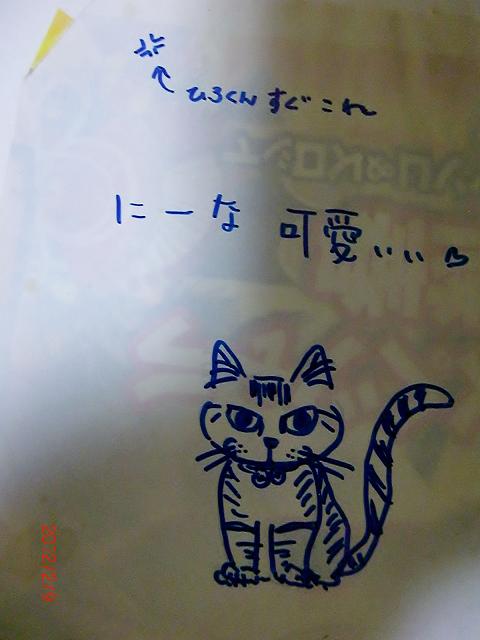 ひろくんすぐこれ
にーな 可愛いい
2012/2/9